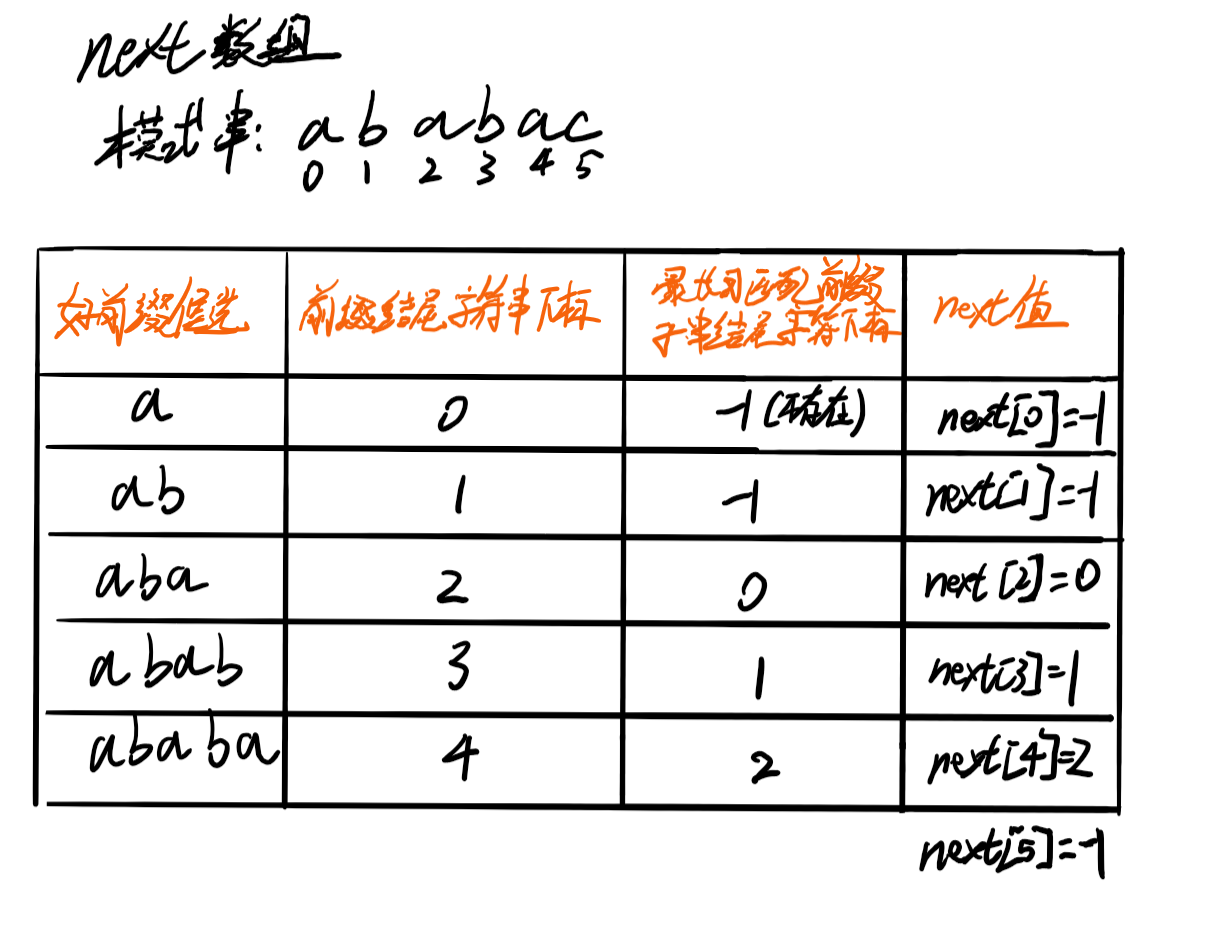 next数组
模式串: ababac
0 1 2 3 4 5
好前缀候选 前缀结尾字符串下标 最长可匹配前缀子串结尾字符下标 next值
a 0 -1(不存在) next[0]=-1
ab 1 -1 next[1]=-1
aba 2 0 next[2]=0
abab 3 1 next[3]=1
ababa 4 2 next[4]=2
next[5]=-1